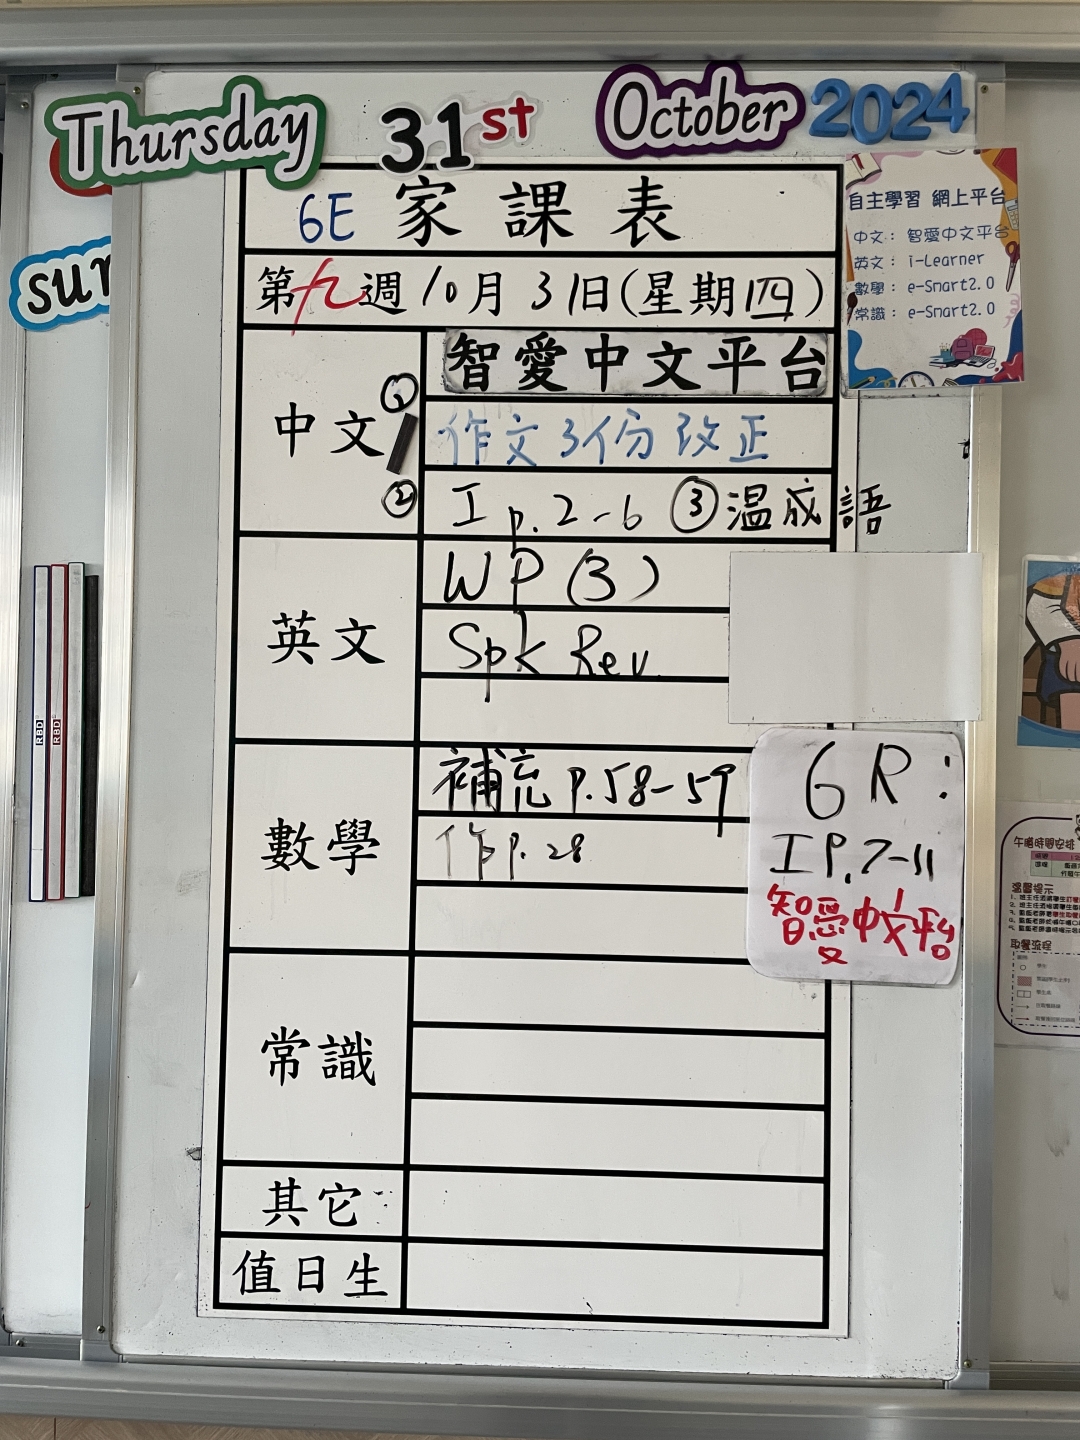 Thursday 31st October 2024
sun
6E 家課表
第九週 10月31日(星期四)
自主學習 網上平台
中文： 智愛中文平台
英文： i-Learner
數學： e-Smart2.0
常識： e-Smart2.0
中文
①
智愛中文平台
作文3份改正
②
I p.2-6 ③溫成語
英文
WP (3)
Spk Rev.
數學
補充 P.58-59
作 p.28
6R:
I P.7-11
智愛中文平台
常識
其它
值日生
RBD
RBD
午膳時間安排
溫馨提示
取餐流程